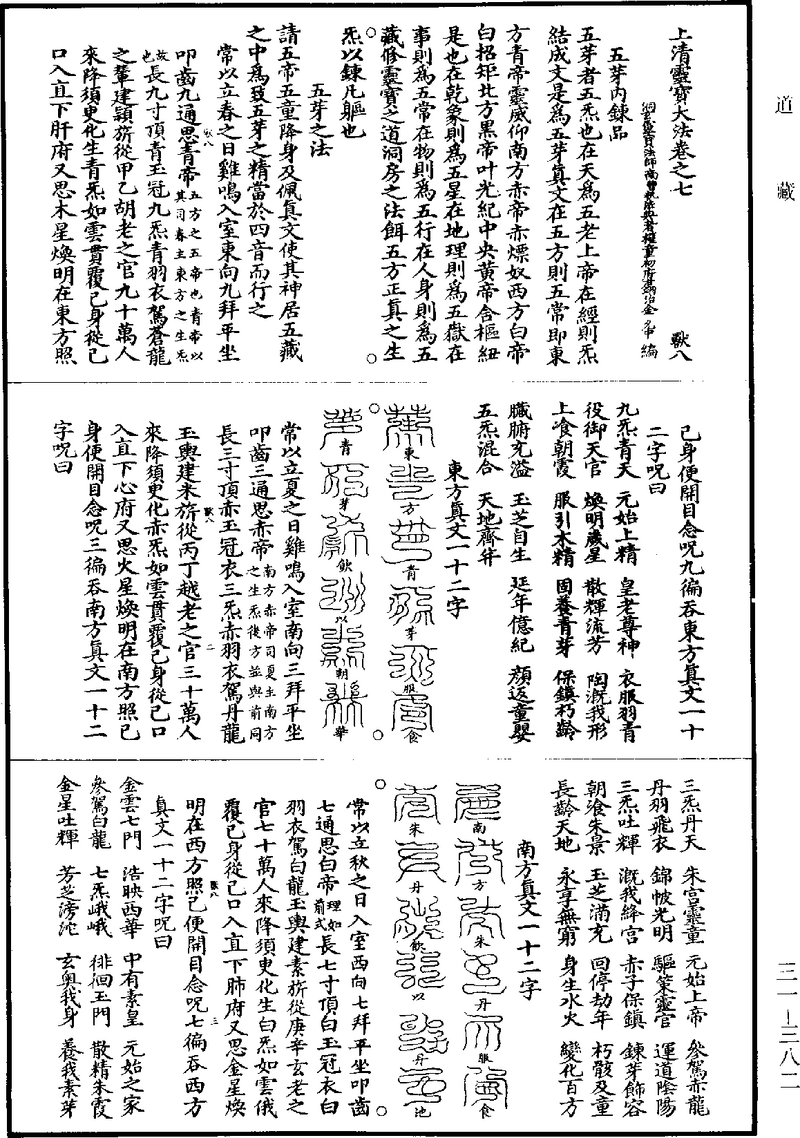 道藏
上清靈寶大法卷之七
獸八
洞玄靈寶法師南曹執法典者權童初府
金 編
五芽内鍊品
五芽者五炁也在天爲五老上帝在經則炁
結成文是爲五芽真文在五方則五常即東
方青帝靈威仰南方赤帝赤熛奴西方白帝
白招矩北方黑帝叶光紀中央黄帝含樞紐
是也在乾象則爲五星在地理則爲五嶽在
事則爲五常在物則爲五行在人身則爲五
藏修靈寶之道洞房之法餌五方正真之生
炁以鍊凡軀也
五芽之法
請五帝五童降身及佩真文使其神居五藏
之中爲致五芽之精當於四音而行之
常以立春之日雞鳴入室東向九拜平坐
叩齒九通思青帝五方之五帝也青帝以其司春主東方之生炁
故也長九寸頂青玉冠九炁青羽衣駕蒼龍
之輦建頴旂從甲乙胡老之官九十萬人
來降須臾化生青炁如雲貫覆己身從己
口入直下肝府又思木星煥明在東方照
己身便開目念呪九徧吞東方真文一十
二字呪曰
九炁青天 元始上精 皇老尊神 衣服羽青
役御天官 煥明歲星 散輝流芳 陶溉我形
上飡朝霞 服引木精 固養青芽 保鎮朽齡
臟腑充溢 玉芝自生 延年億紀 顏返童嬰
五炁混合 天地齊并
東方真文一十二字
東方青芽服食
青芽飲以朝華
常以立夏之日雞鳴入室南向三拜平坐
叩齒三通思赤帝南方赤帝司夏主南方之生炁後方並與前同
長三寸頂赤玉冠衣三炁赤羽衣駕丹龍
獸八 二
玉輿建朱旂從丙丁越老之官三十萬人
來降須臾化赤炁如雲貫覆己身從己口
入直下心府又思火星煥明在南方照己
身便開目念呪三徧吞南方真文一十二
字呪曰
三炁丹天 朱宫靈童 元始上帝 參駕赤龍
丹羽飛衣 錦帔光明 驅策靈官 運道陰陽
三炁吐輝 溉我絳宫 赤子保鎮 鍊芽飾容
朝飡朱景 玉芝滿充 回停劫年 朽骸及童
長齡天地 永享無窮 身生水火 變化百方
南方真文一十二字
南方朱丹服食
朱丹飲以丹池
常以立秋之日入室西向七拜平坐叩齒
七通思白帝理如前式長七寸頂白玉冠衣白
羽衣駕白龍玉輿建素旂從庚辛玄老之
官七十萬人來降須臾化生白炁如雲俄
覆己身從己口入直下肺府又思金星煥
獸八 三
明在西方照己便開目念呪七徧吞西方
真文一十二字呪曰
金雲七門 浩映西華 中有素皇 元始之家
參駕白龍 七炁峨峨 徘徊玉門 散精朱霞
金星吐輝 芳芝滂沱 玄奥我身 養我素芽
三一-三八二